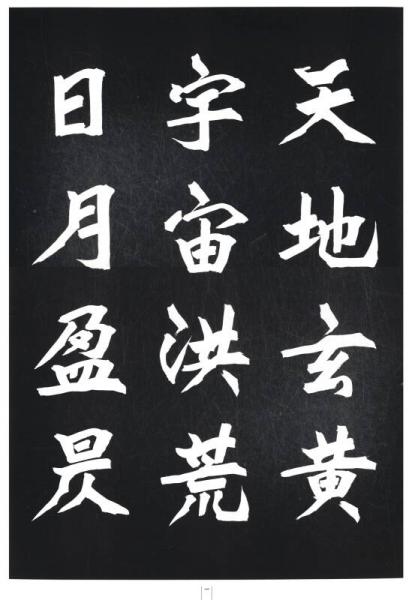 天地玄黄
宇宙洪荒
日月盈昃
一